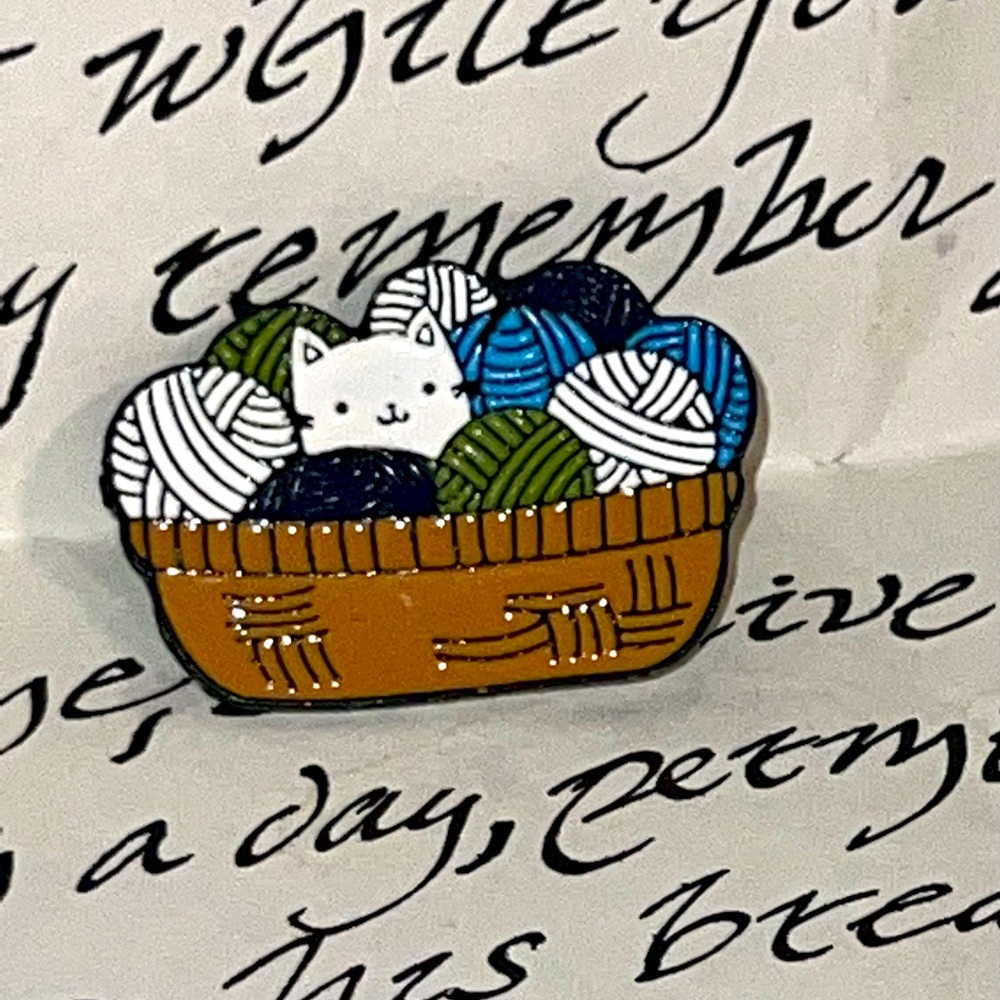 while you
y remember
ive
a day, permi
this brea